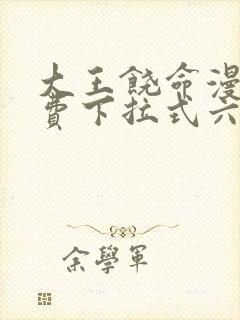 大王饶命漫
费下拉式六
余學軍